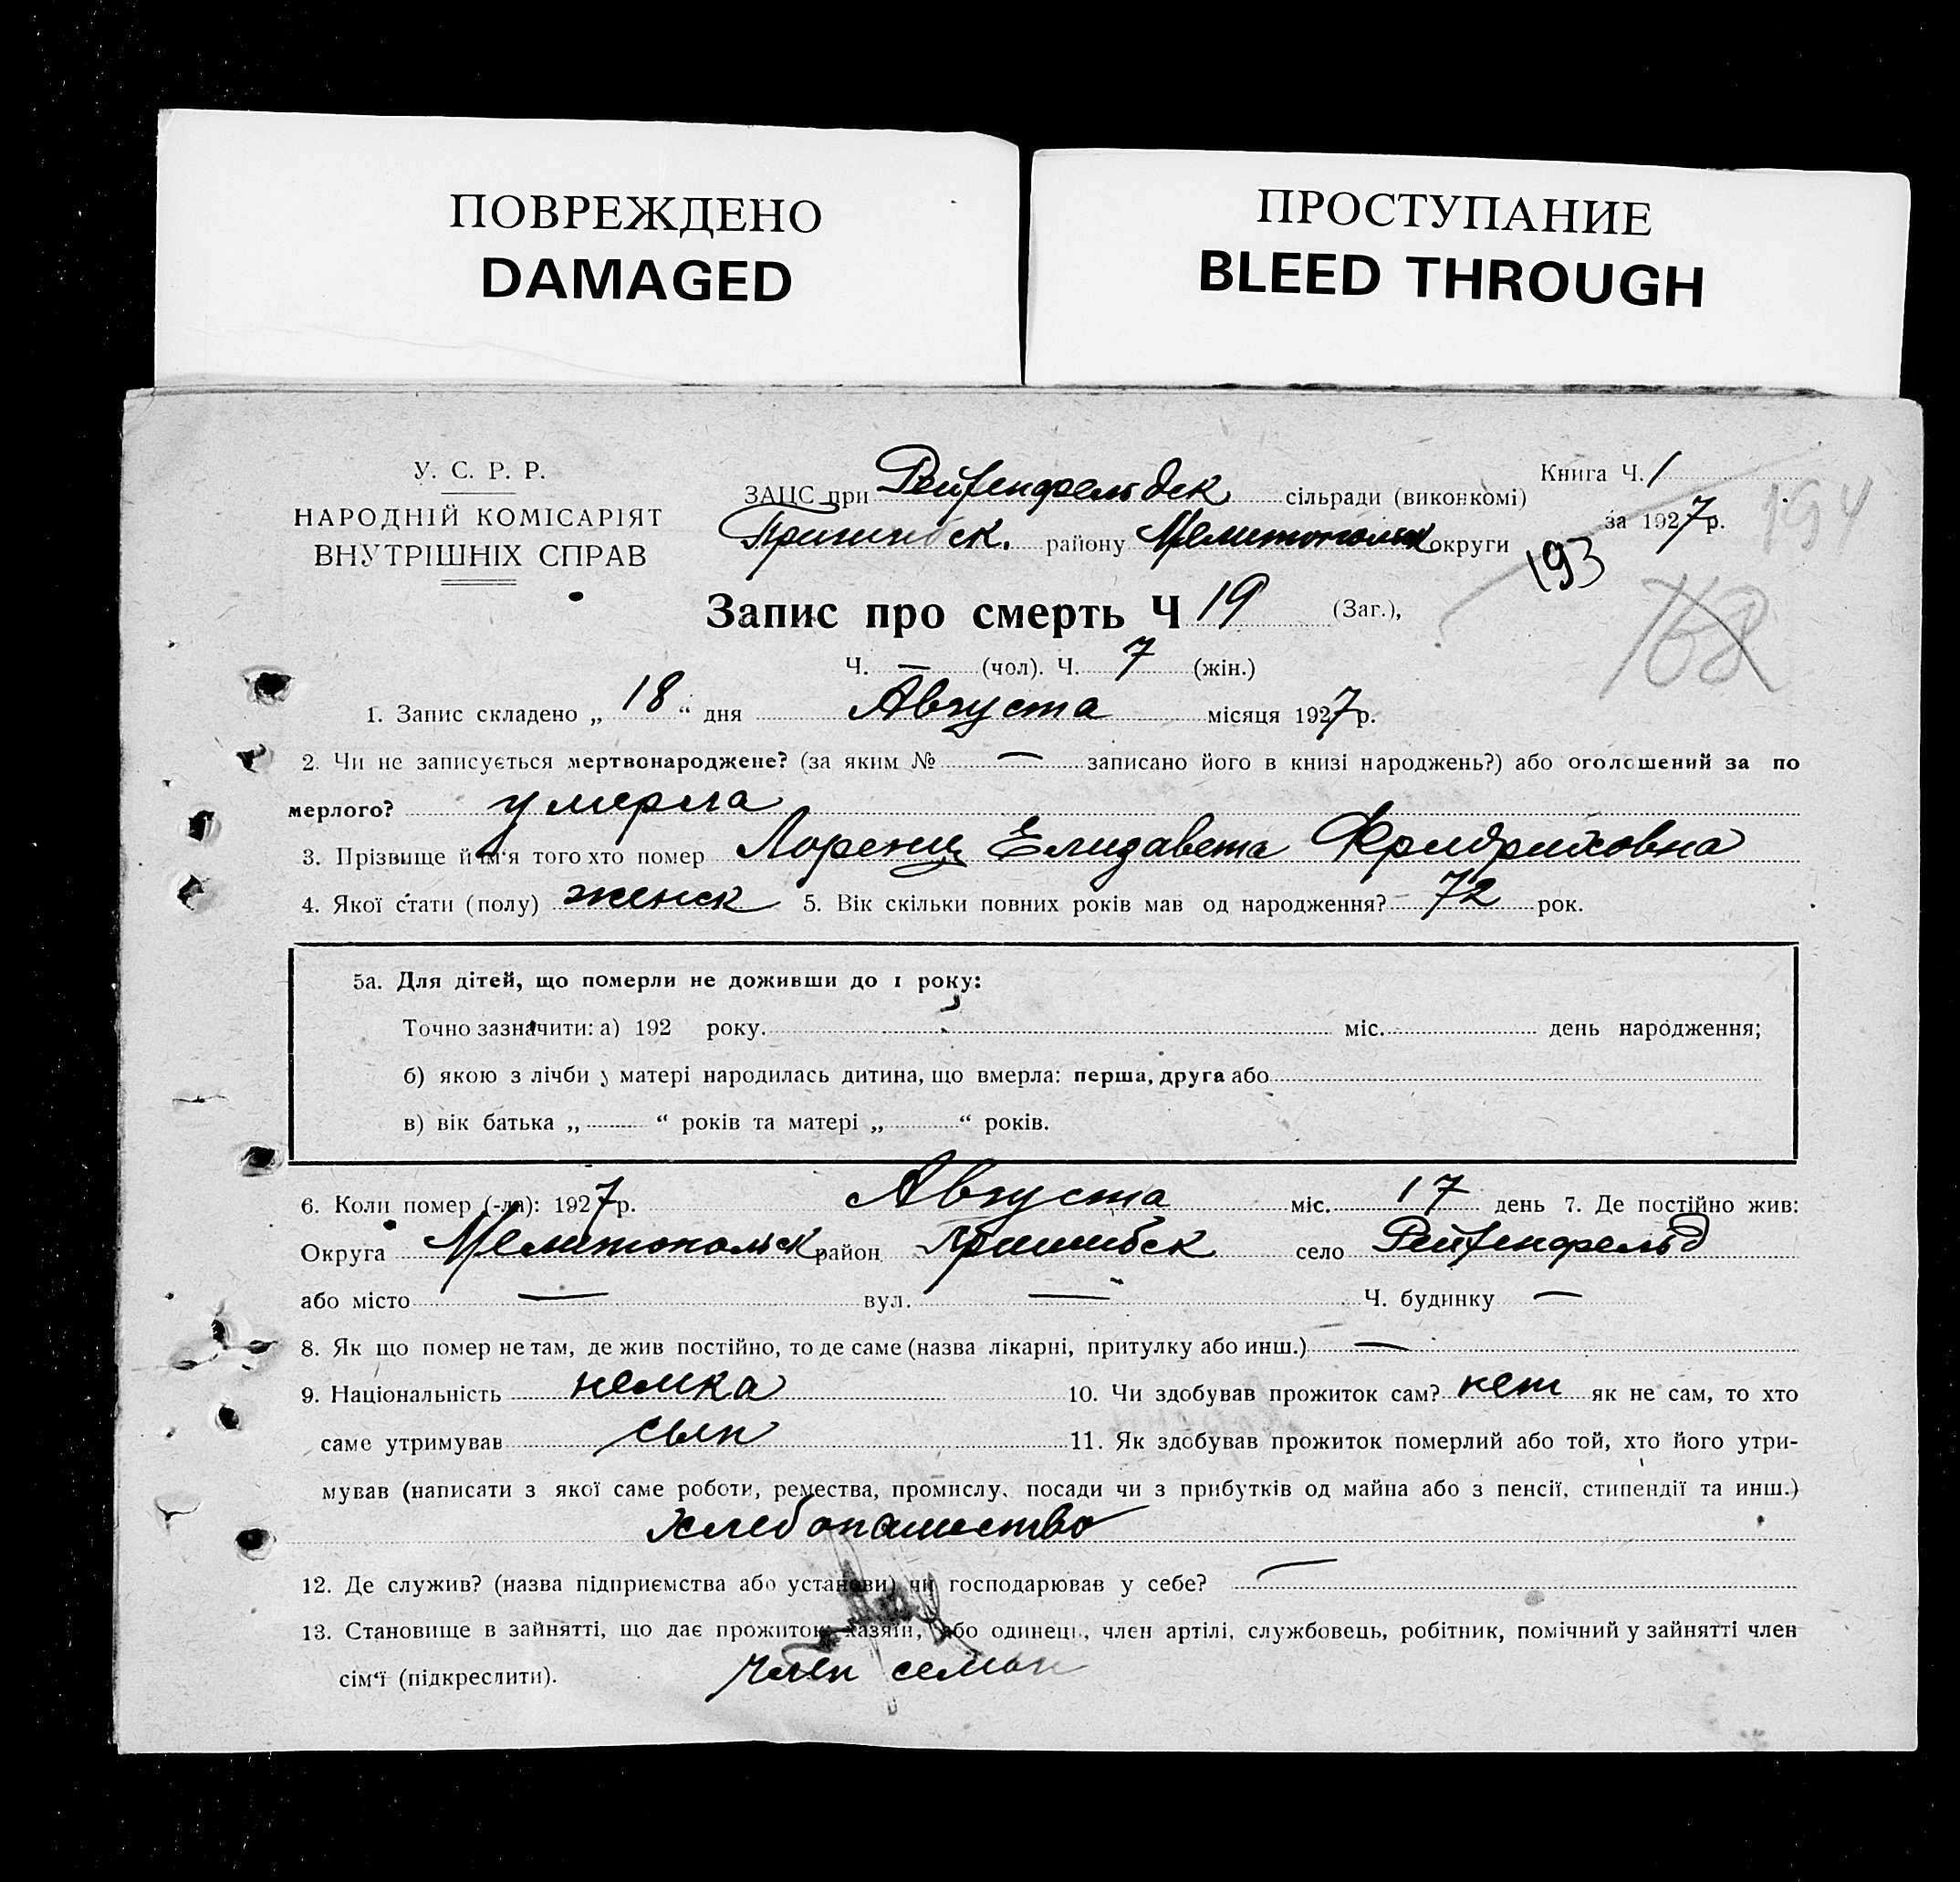 ПОВРЕЖДЕНО
DAMAGED
ПРОСТУПАНИЕ
BLEED THROUGH
У. С. Р. Р.
НАРОДНІЙ КОМІСАРІЯТ
ВНУТРІШНІХ СПРАВ
ЗАЦС при Рейфенфельдск сільради (виконкомі)
Пришибск. району Мелитопольск округи
Книга Ч. 1
за 1927 р.
194
193
168
Запис про смерть Ч 19 (Заг.),
Ч. — (чол). Ч. 7 (жін.)
1. Запис складено „ 18 “ дня Августа місяця 1927 р.
2. Чи не записується мертвонароджене? (за яким № — записано його в книзі народжень?) або оголошений за по
мерлого? умерла
3. Прізвище й ім‘я того хто помер Лоренц Елизавета Фридриховна
4. Якої стати (полу) женск 5. Вік скільки повних років мав од народження? 72 рок.
5а. Для дітей, що померли не доживши до 1 року:
Точно зазначити: а) 192 року. міс. день народження;
б) якою з лічби у матері народилась дитина, що вмерла: перша, друга або
в) вік батька „ “ років та матері „ “ років.
6. Коли помер (-ла): 1927 р. Августа міс. 17 день 7. Де постійно жив:
Округа Мелитопольск район Пришибск село Рейфенфельд
або місто — вул. — Ч. будинку —
8. Як що помер не там, де жив постійно, то де саме (назва лікарні, притулку або инш.) —
9. Національність немка 10. Чи здобував прожиток сам? нет як не сам, то хто
саме утримував сын 11. Як здобував прожиток померлий або той, хто його утри-
мував (написати з якої саме роботи, ремества, промислу, посади чи з прибутків од майна або з пенсії, стипендії та инш.)
хлебопашество
12. Де служив? (назва підприємства або установи) чи господарював у себе? —
13. Становище в зайнятті, що дає прожиток: хазяїн, або одинець, член артілі, службовець, робітник, помічний у зайнятті член
сім‘ї (підкреслити). член семьи